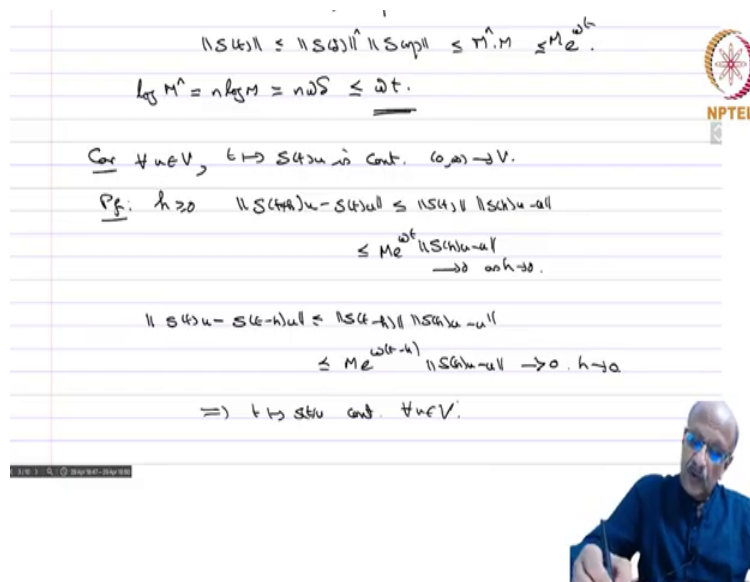 ||S(t)|| ≤ ||S(δ)||^n ||S(η)|| ≤ M^n·M ≤ Me^{ωt}.
log M^n = n log M = nωδ ≤ ωt.
NPTEL
Cor ∀u∈V, t ↦ S(t)u is cont. (0,∞) → V.
Pf: h≥0 ||S(t+h)u - S(t)u|| ≤ ||S(t)|| ||S(h)u-u||
≤ Me^{ωt} ||S(h)u-u||
→0 as h→0.
||S(t)u - S(t-h)u|| ≤ ||S(t-h)|| ||S(h)u-u||
≤ Me^{ω(t-h)} ||S(h)u-u|| →0. h→0
⇒ t ↦ S(t)u cont. ∀u∈V.